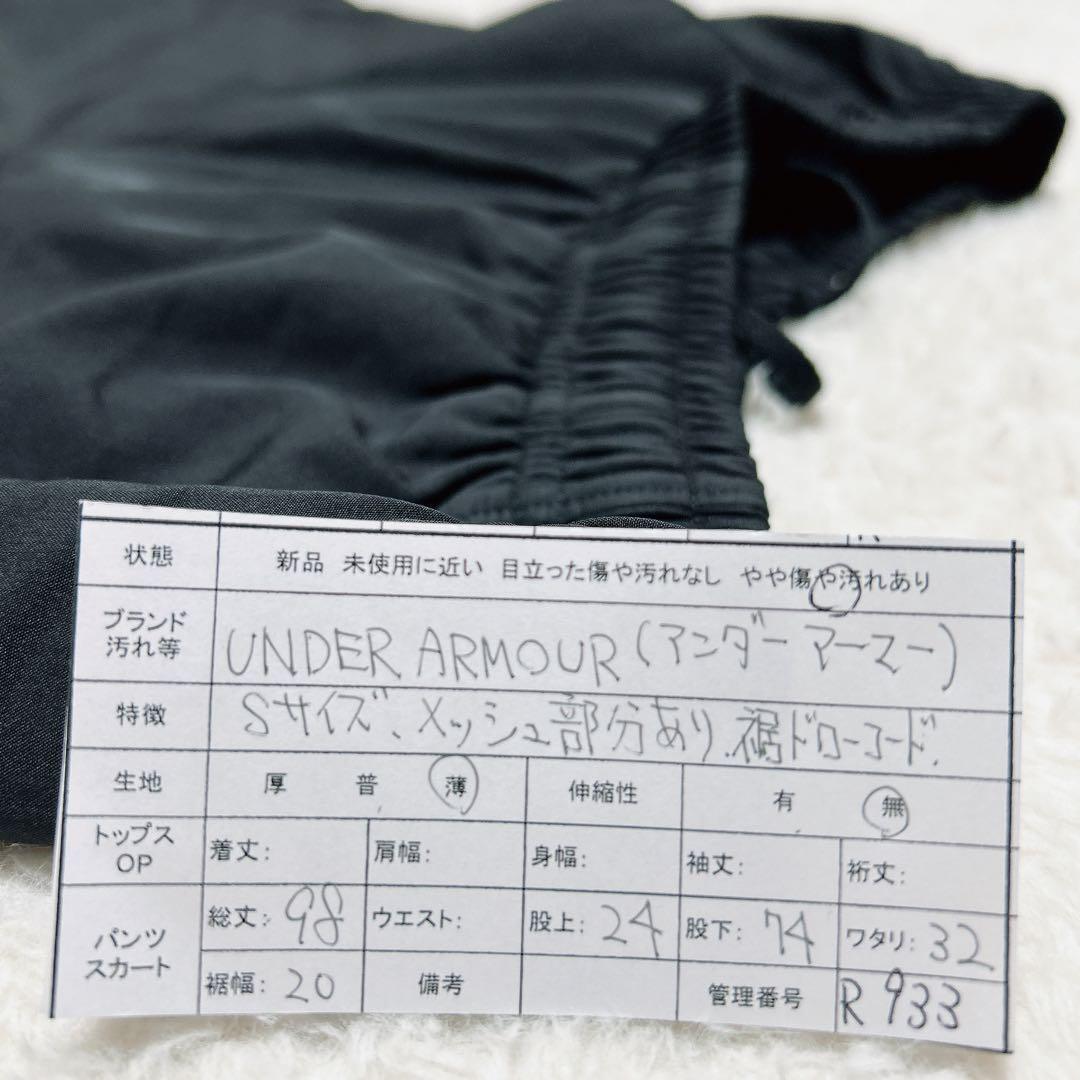 状態 新品 未使用に近い 目立った傷や汚れなし やや傷や汚れあり
ブランド
汚れ等 UNDER ARMOUR (アンダーアーマー)
特徴 Sサイズ、メッシュ部分あり.裾ドローコード.
生地 厚 普 薄 伸縮性 有 無
トップス
OP 着丈: 肩幅: 身幅: 袖丈: 裄丈:
パンツ
スカート 総丈: 98 ウエスト: 股上: 24 股下: 74 ワタリ: 32
裾幅: 20 備考 管理番号 R933